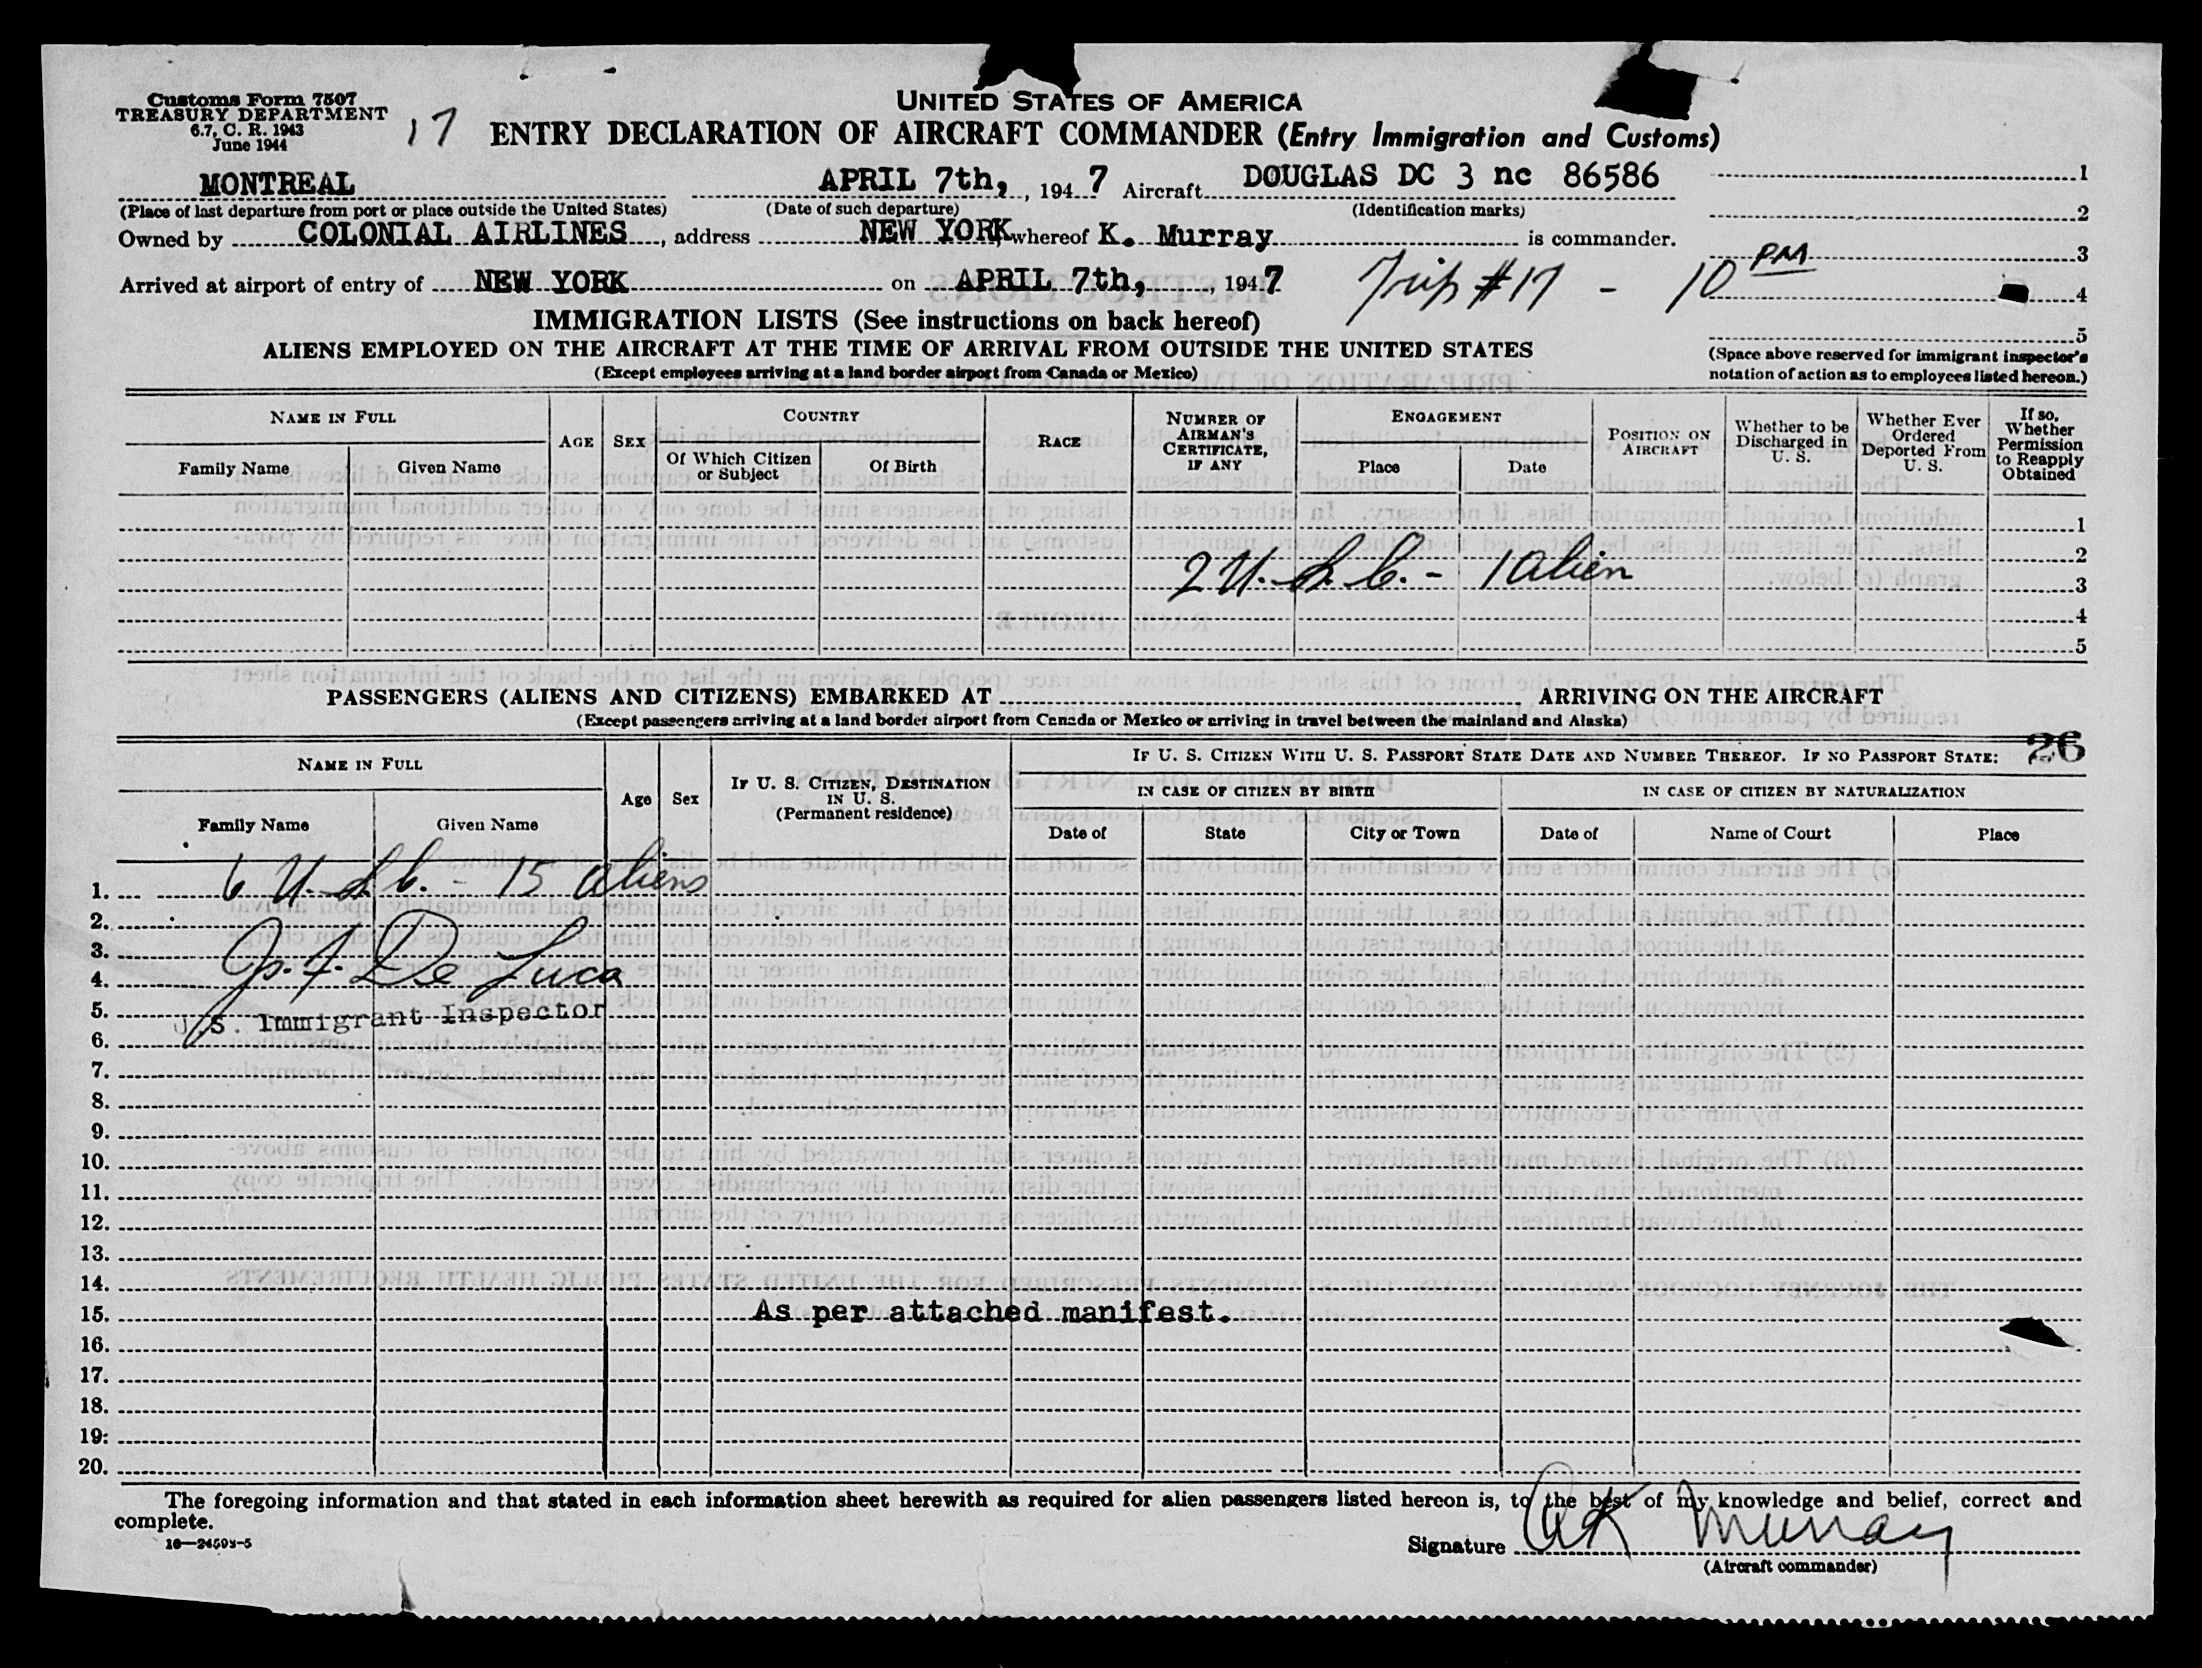 Customs Form 7507
TREASURY DEPARTMENT
6.7, C. R. 1943
June 1944
17
UNITED STATES OF AMERICA
ENTRY DECLARATION OF AIRCRAFT COMMANDER (Entry Immigration and Customs)
MONTREAL APRIL 7th, , 1947 Aircraft DOUGLAS DC 3 nc 86586 1
(Place of last departure from port or place outside the United States) (Date of such departure) (Identification marks) 2
Owned by COLONIAL AIRLINES , address NEW YORK whereof K. Murray is commander.
PM 3
Arrived at airport of entry of NEW YORK on APRIL 7th, , 1947 Trip #17 - 10 4
IMMIGRATION LISTS (See instructions on back hereof) 5
ALIENS EMPLOYED ON THE AIRCRAFT AT THE TIME OF ARRIVAL FROM OUTSIDE THE UNITED STATES
(Except employees arriving at a land border airport from Canada or Mexico)
(Space above reserved for immigrant inspector's
notation of action as to employees listed hereon.)
NAME IN FULL
Family Name Given Name
AGE SEX
COUNTRY
Of Which Citizen or Subject
Of Birth
RACE
NUMBER OF AIRMAN'S CERTIFICATE, IF ANY
ENGAGEMENT
Place Date
POSITION ON AIRCRAFT
Whether to be Discharged in U. S.
Whether Ever Ordered Deported From U. S.
If so, Whether Permission to Reapply Obtained
1
2
2 U. S. C. - 1 alien 3
4
5
PASSENGERS (ALIENS AND CITIZENS) EMBARKED AT , ARRIVING ON THE AIRCRAFT
(Except passengers arriving at a land border airport from Canada or Mexico or arriving in travel between the mainland and Alaska)
NAME IN FULL
Family Name Given Name
Age Sex
IF U. S. CITIZEN, DESTINATION IN U. S.
(Permanent residence)
IF U. S. CITIZEN WITH U. S. PASSPORT STATE DATE AND NUMBER THEREOF. IF NO PASSPORT STATE: 26
IN CASE OF CITIZEN BY BIRTH IN CASE OF CITIZEN BY NATURALIZATION
Date of State City or Town Date of Name of Court Place
1. 6 U. S. C. - 15 aliens
2.
3.
4. J. F. De Luca
5. U.S. Immigrant Inspector
6.
7.
8.
9.
10.
11.
12.
13.
14.
15. As per attached manifest.
16.
17.
18.
19.
20.
The foregoing information and that stated in each information sheet herewith as required for alien passengers listed hereon is, to the best of my knowledge and belief, correct and
complete.
16—24593-5
Signature AK Murray
(Aircraft commander)